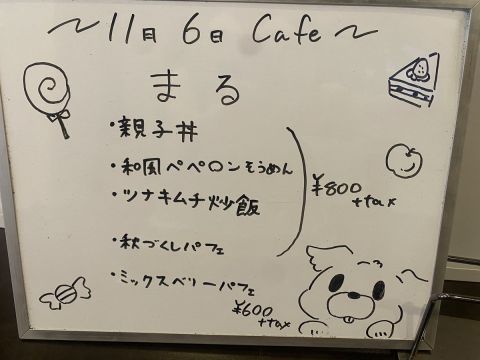 ～11月6日 Cafe～
まる
・親子丼
・和風ペペロンそうめん
・ツナキムチ炒飯
¥800
+tax
・秋づくしパフェ
・ミックスベリーパフェ
¥600
+tax